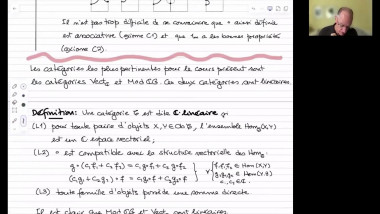 Il n'est pas trop difficile de se convaincre que ∘ ainsi définie
est associative (axiome C1) et que 1x a les bonnes propriétés
(axiome C2).
Les catégories les plus pertinentes pour le cours présent sont
les catégories Vect_C et Mod CG. Ces deux catégories sont linéaires.
Définition: Une catégorie 𝒞 est dite C-linéaire si
(L1) pour toute paire d'objets X,Y ∈ Ob 𝒞, l'ensemble Hom(X,Y)
est un C espace vectoriel;
(L2) ∘ est compatible avec la structure vectorielle des Hom:
g∘(c₁f₁ + c₂f₂) = c₁ g∘f₁ + c₂ g∘f₂
(c₁g₁ + c₂g₂)∘f = c₁ g₁∘f + c₂ g₂∘f
(L3) toute famille d'objets possède une somme directe.
Il est clair que Mod CG et Vect sont linéaires.